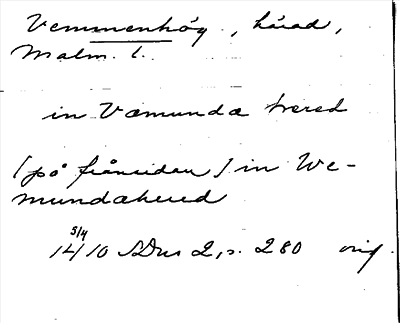 Vemmenhög, härad,
Malm. l.
in Væmunda hæred
[på frånsidan] in We-
mundæhered
5/4
14/10 SDns 2, s. 280 orig.